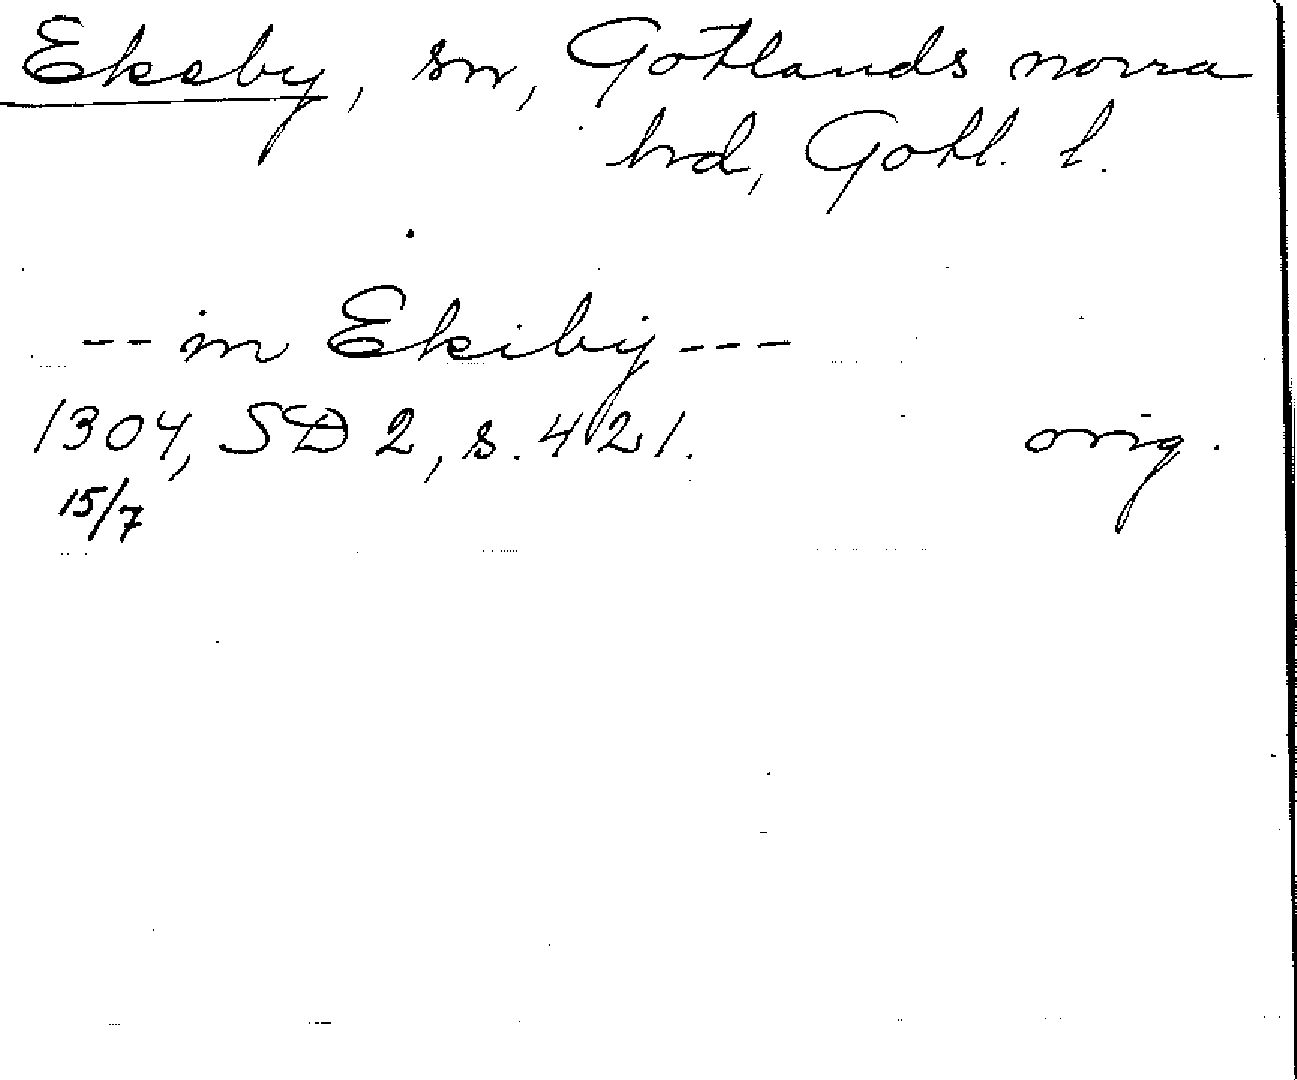 Ekeby, sn, Gotlands norra
hd, Gotl. l.
-- in Ekiby ---
1304, SD 2, s. 421. orig.
15/7